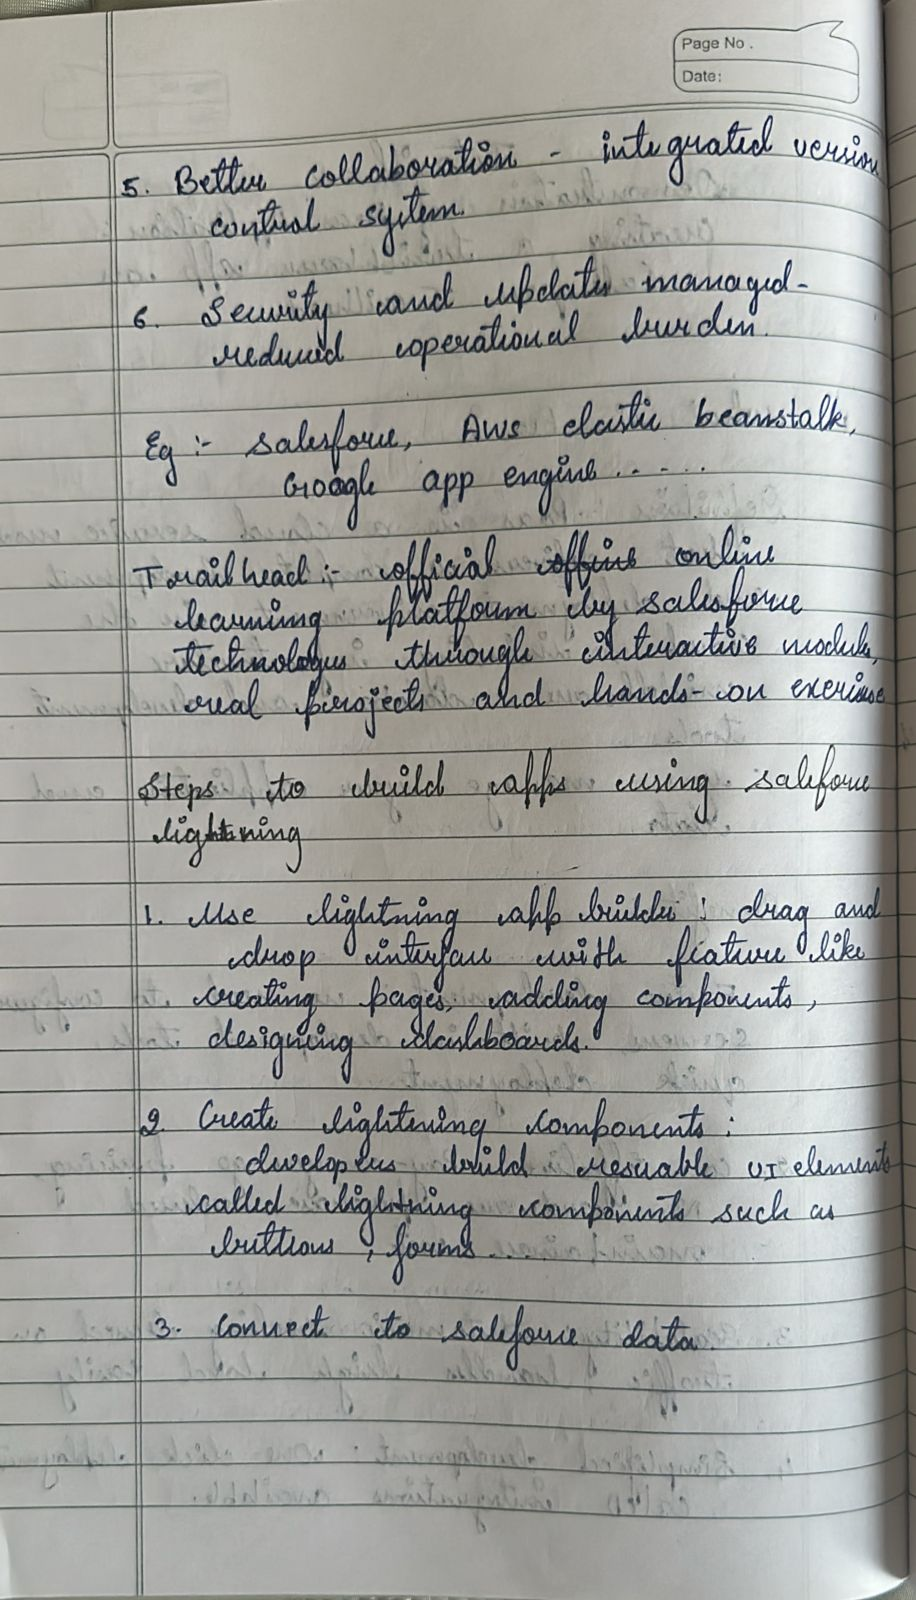 Page No.
Date:
5. Better collaboration - integrated version
control system.
6. Security and updates managed-
reduced operational burden.
Eg :- salesforce, AWS elastic beanstalk,
Google app engine.....
Trailhead :- official online
learning platform by salesforce
technologies through interactive modules,
real projects and hands-on exercise
Steps to build apps using salesforce
lightning
1. Use lightning app builder : drag and
drop interface with feature like
creating pages, adding components,
designing dashboards.
2 Create lightening components :
developers build resuable UI elements
called lightning components such as
buttions, forms....
3. Connect to salesforce data.